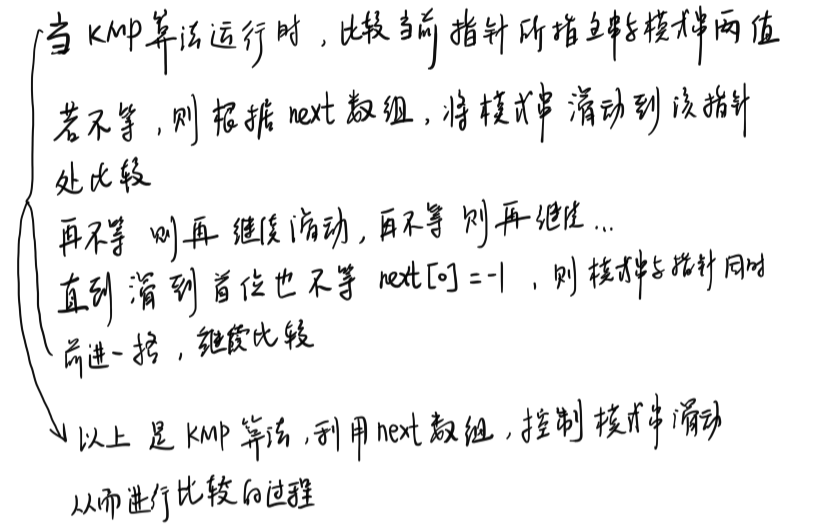 当 KMP算法运行时，比较当前指针所指主串与模式串两值
若不等，则根据next数组，将模式串滑动到该指针
处比较
再不等 则再继续滑动，再不等则再继续...
直到滑到首位也不等 next[0]=-1，则模式串与指针同时
前进一格，继续比较
以上是KMP算法，利用next数组，控制模式串滑动
从而进行比较的过程